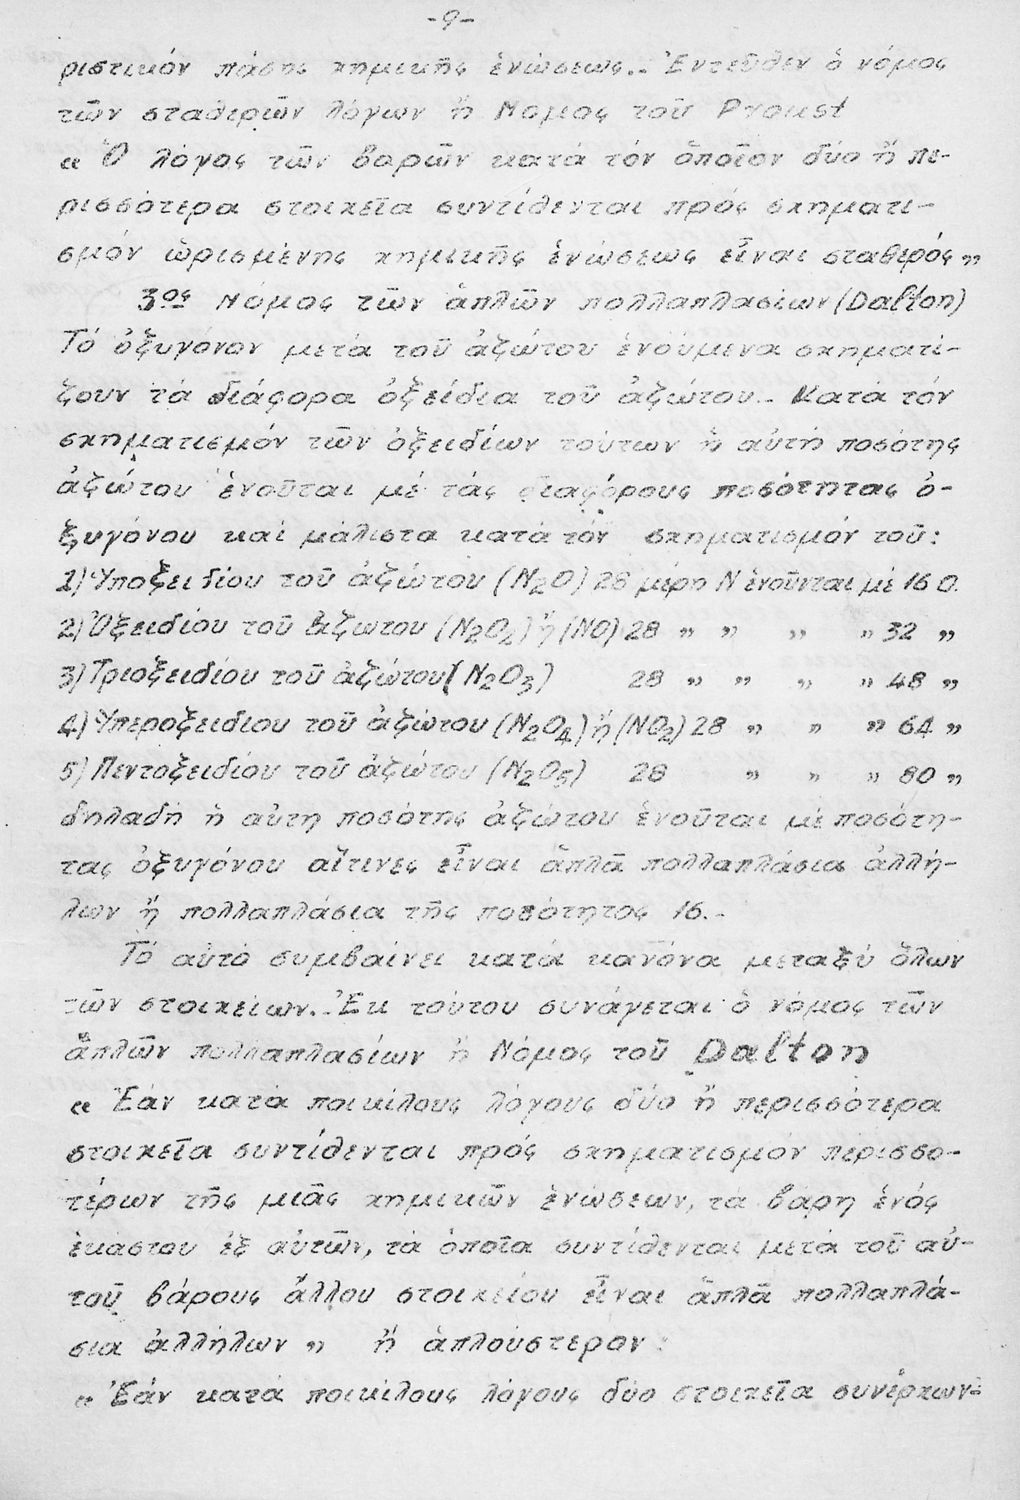 -9-
ριστικόν πάσης χημικῆς ἑνώσεως.- Ἐντεῦθεν ὁ νόμος
τῶν σταθερῶν λόγων ἤ Νόμος τοῦ Proust
« Ὁ λόγος τῶν βαρῶν κατά τόν ὁποῖον δύο ἤ πε-
ρισσότερα στοιχεῖα συντίθενται πρός σχηματι-
σμόν ὡρισμένης χημικῆς ἑνώσεως εἶναι σταθερός »
3ος Νόμος τῶν ἁπλῶν πολλαπλασίων (Dalton)
Τό ὀξυγόνον μετά τοῦ ἀζώτου ἑνούμενα σχηματί-
ζουν τά διάφορα ὀξείδια τοῦ ἀζώτου.- Κατά τόν
σχηματισμόν τῶν ὀξειδίων τούτων ἡ αὐτή ποσότης
ἀζώτου ἑνοῦται μέ τάς διαφόρους ποσότητας ὀ-
ξυγόνου καί μάλιστα κατά τόν σχηματισμόν τοῦ:
1) Ὑποξειδίου τοῦ ἀζώτου (N2O) 28 μέρη N ἑνοῦνται μέ 16 O.
2) Ὀξειδίου τοῦ ἀζώτου (N2O2) ἤ (NO) 28 " " " " 32 "
3) Τριοξειδίου τοῦ ἀζώτου (N2O3) 28 " " " " 48 "
4) Ὑπεροξειδίου τοῦ ἀζώτου (N2O4) ἤ (NO2) 28 " " " 64 "
5) Πεντοξειδίου τοῦ ἀζώτου (N2O5) 28 " " " 80 "
δηλαδή ἡ αὐτή ποσότης ἀζώτου ἑνοῦται μέ ποσότη-
τας ὀξυγόνου αἵτινες εἶναι ἁπλᾶ πολλαπλάσια ἀλλή-
λων ἤ πολλαπλάσια τῆς ποσότητος 16.-
Τό αὐτό συμβαίνει κατά κανόνα μεταξύ ὅλων
τῶν στοιχείων.- Ἐκ τούτου συνάγεται ὁ νόμος τῶν
ἁπλῶν πολλαπλασίων ἤ Νόμος τοῦ Dalton
« Ἐάν κατά ποικίλους λόγους δύο ἤ περισσότερα
στοιχεῖα συντίθενται πρός σχηματισμόν περισσο-
τέρων τῆς μιᾶς χημικῶν ἑνώσεων, τά βάρη ἑνός
ἑκάστου ἐξ αὐτῶν, τά ὁποῖα συντίθενται μετά τοῦ αὐ-
τοῦ βάρους ἄλλου στοιχείου εἶναι ἁπλᾶ πολλαπλά-
σια ἀλλήλων » ἤ ἁπλούστερον:
« Ἐάν κατά ποικίλους λόγους δύο στοιχεῖα συνέρχων-